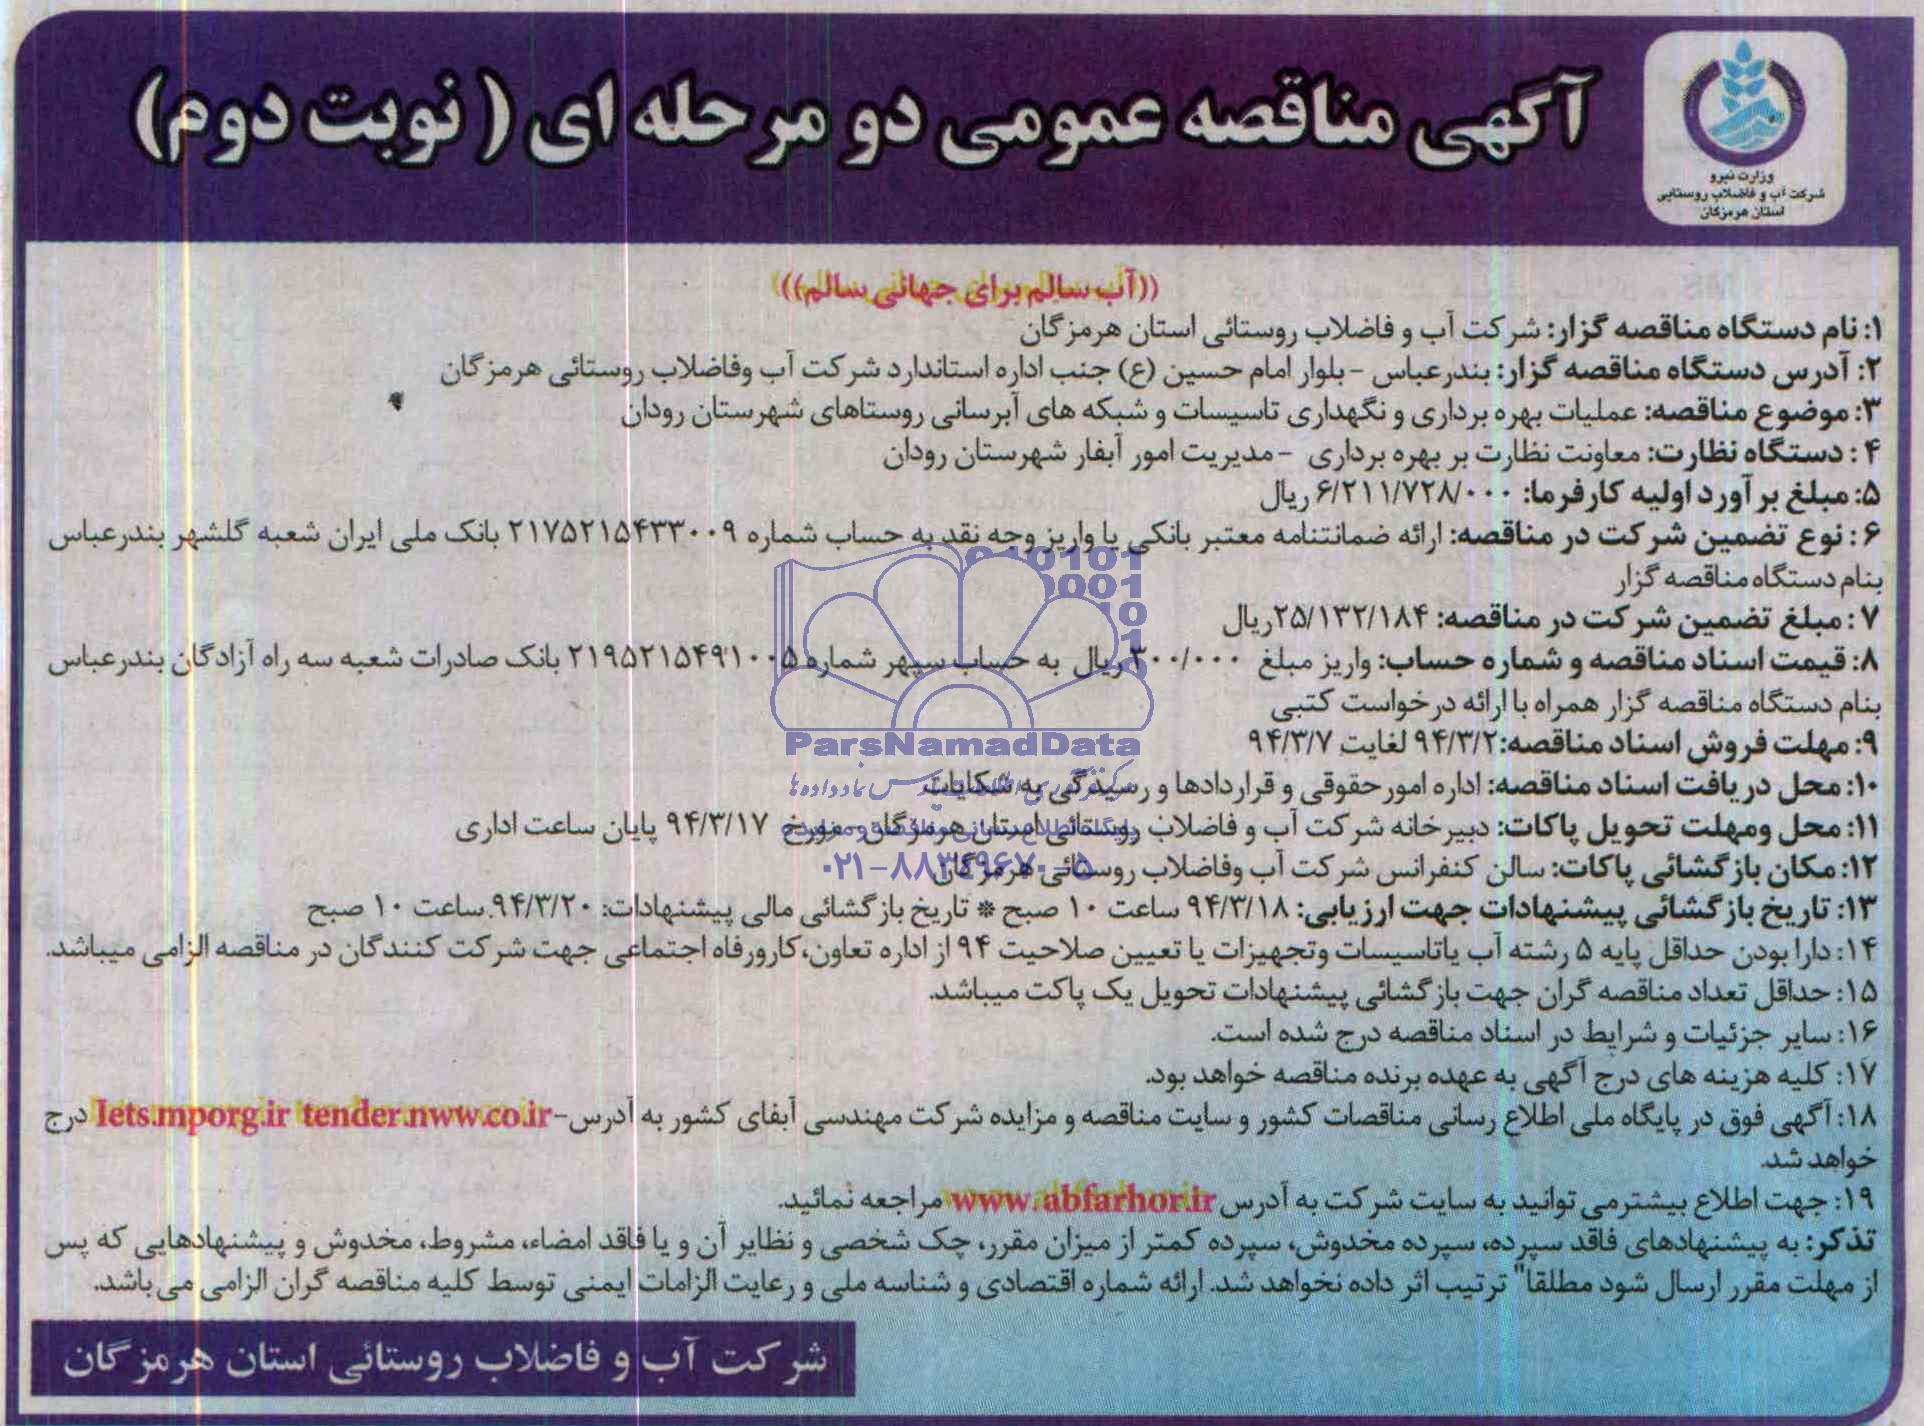 آگهی مناقصه عمومی دو مرحله ای ( نوبت دوم)
وزارت نیرو
شرکت آب و فاضلاب روستایی
استان هرمزگان
((آب سالم برای جهانی سالم))
۱: نام دستگاه مناقصه گزار: شرکت آب و فاضلاب روستائی استان هرمزگان
۲: آدرس دستگاه مناقصه گزار: بندرعباس -بلوار امام حسین (ع) جنب اداره استاندارد شرکت آب وفاضلاب روستائی هرمزگان
۳: موضوع مناقصه: عملیات بهره برداری و نگهداری تاسیسات و شبکه های آبرسانی روستاهای شهرستان رودان
۴: دستگاه نظارت: معاونت نظارت بر بهره برداری -مدیریت امور آبفار شهرستان رودان
۵: مبلغ برآورد اولیه کارفرما: ۶/۲۱۱/۷۲۸/۰۰۰ ریال
۶: نوع تضمین شرکت در مناقصه: ارائه ضمانتنامه معتبر بانکی یا واریز وجه نقد به حساب شماره ۲۱۷۵۲۱۵۴۳۳۰۰۹ بانک ملی ایران شعبه گلشهر بندرعباس
بنام دستگاه مناقصه گزار
۷: مبلغ تضمین شرکت در مناقصه: ۲۵/۱۳۲/۱۸۴ریال
۸: قیمت اسناد مناقصه و شماره حساب: واریز مبلغ ۳۰۰/۰۰۰ ریال به حساب سپهر شماره ۲۱۹۵۲۱۵۴۹۱۰۰۵ بانک صادرات شعبه سه راه آزادگان بندرعباس
بنام دستگاه مناقصه گزار همراه با ارائه درخواست کتبی
۹: مهلت فروش اسناد مناقصه:۹۴/۳/۲ لغایت ۹۴/۳/۷
ParsNamadData
۱۰: محل دریافت اسناد مناقصه: اداره امور حقوقی و قراردادها و رسیدگی به شکایات
۱۱: محل ومهلت تحویل پاکات: دبیرخانه شرکت آب و فاضلاب روستائی استان هرمزگان - مورخ ۹۴/۳/۱۷ پایان ساعت اداری
پایگاه اطلاع رسانی مناقصه و مزایده
۱۲: مکان بازگشائی پاکات: سالن کنفرانس شرکت آب وفاضلاب روستائی هرمزگان
۰۲۱-۸۸۳۴۹۶۷۰-۵
۱۳: تاریخ بازگشائی پیشنهادات جهت ارزیابی: ۹۴/۳/۱۸ ساعت ۱۰ صبح * تاریخ بازگشائی مالی پیشنهادات: ۹۴/۳/۲۰ ساعت ۱۰ صبح
۱۴: دارا بودن حداقل پایه ۵ رشته آب یاتاسیسات وتجهیزات یا تعیین صلاحیت ۹۴ از اداره تعاون،کارورفاه اجتماعی جهت شرکت کنندگان در مناقصه الزامی میباشد.
۱۵: حداقل تعداد مناقصه گران جهت بازگشائی پیشنهادات تحویل یک پاکت میباشد.
۱۶: سایر جزئیات و شرایط در اسناد مناقصه درج شده است.
۱۷: کلیه هزینه های درج آگهی به عهده برنده مناقصه خواهد بود.
۱۸: آگهی فوق در پایگاه ملی اطلاع رسانی مناقصات کشور و سایت مناقصه و مزایده شرکت مهندسی آبفای کشور به آدرس-Iets.mporg.ir tender.nww.co.ir درج
خواهد شد.
۱۹: جهت اطلاع بیشترمی توانید به سایت شرکت به آدرس www.abfarhor.ir مراجعه نمائید.
تذکر: به پیشنهادهای فاقد سپرده، سپرده مخدوش، سپرده کمتر از میزان مقرر، چک شخصی و نظایر آن و یا فاقد امضاء، مشروط، مخدوش و پیشنهادهایی که پس
از مهلت مقرر ارسال شود مطلقا" ترتیب اثر داده نخواهد شد. ارائه شماره اقتصادی و شناسه ملی و رعایت الزامات ایمنی توسط کلیه مناقصه گران الزامی می باشد.
شرکت آب و فاضلاب روستائی استان هرمزگان